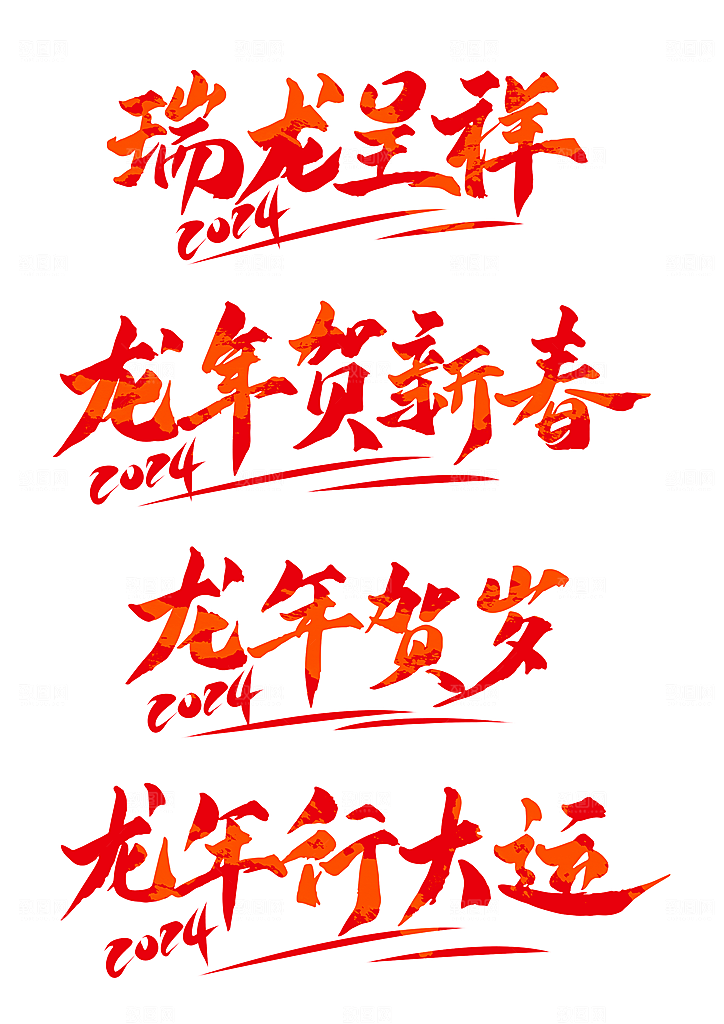 瑞龙呈祥
2024
龙年贺新春
2024
龙年贺岁
2024
龙年行大运
2024